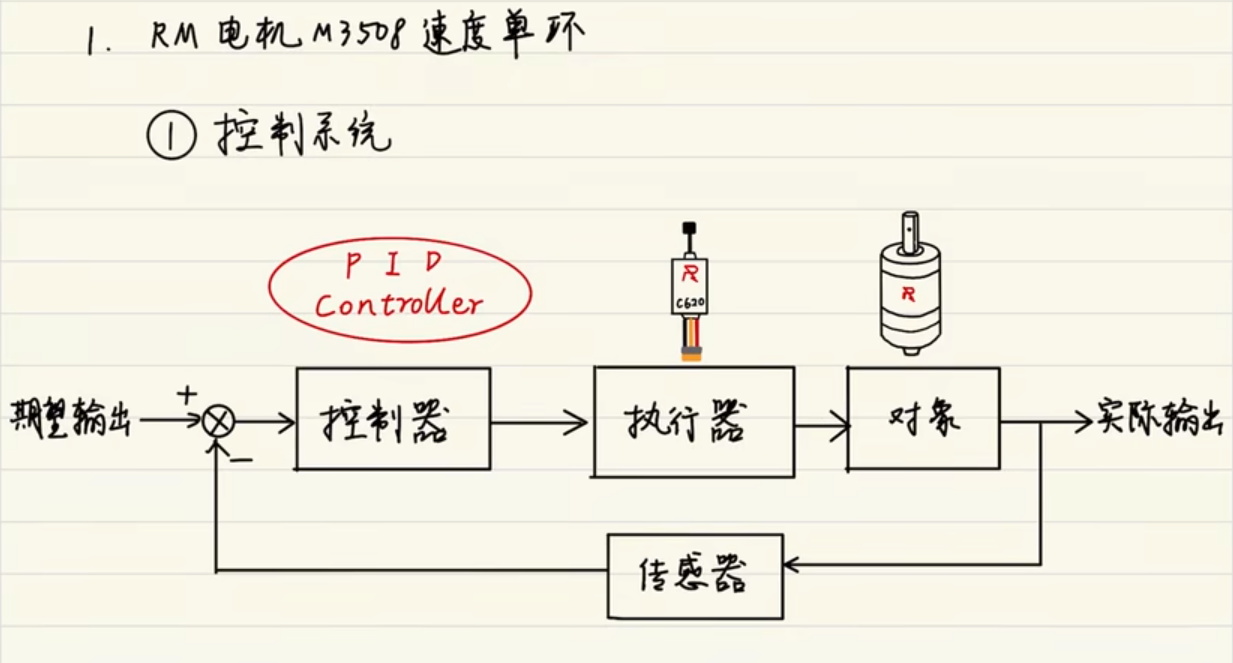 1. RM电机M3508速度单环
① 控制系统
P I D
Controller
R
C620
R
期望输出
+
控制器
执行器
对象
实际输出
−
传感器